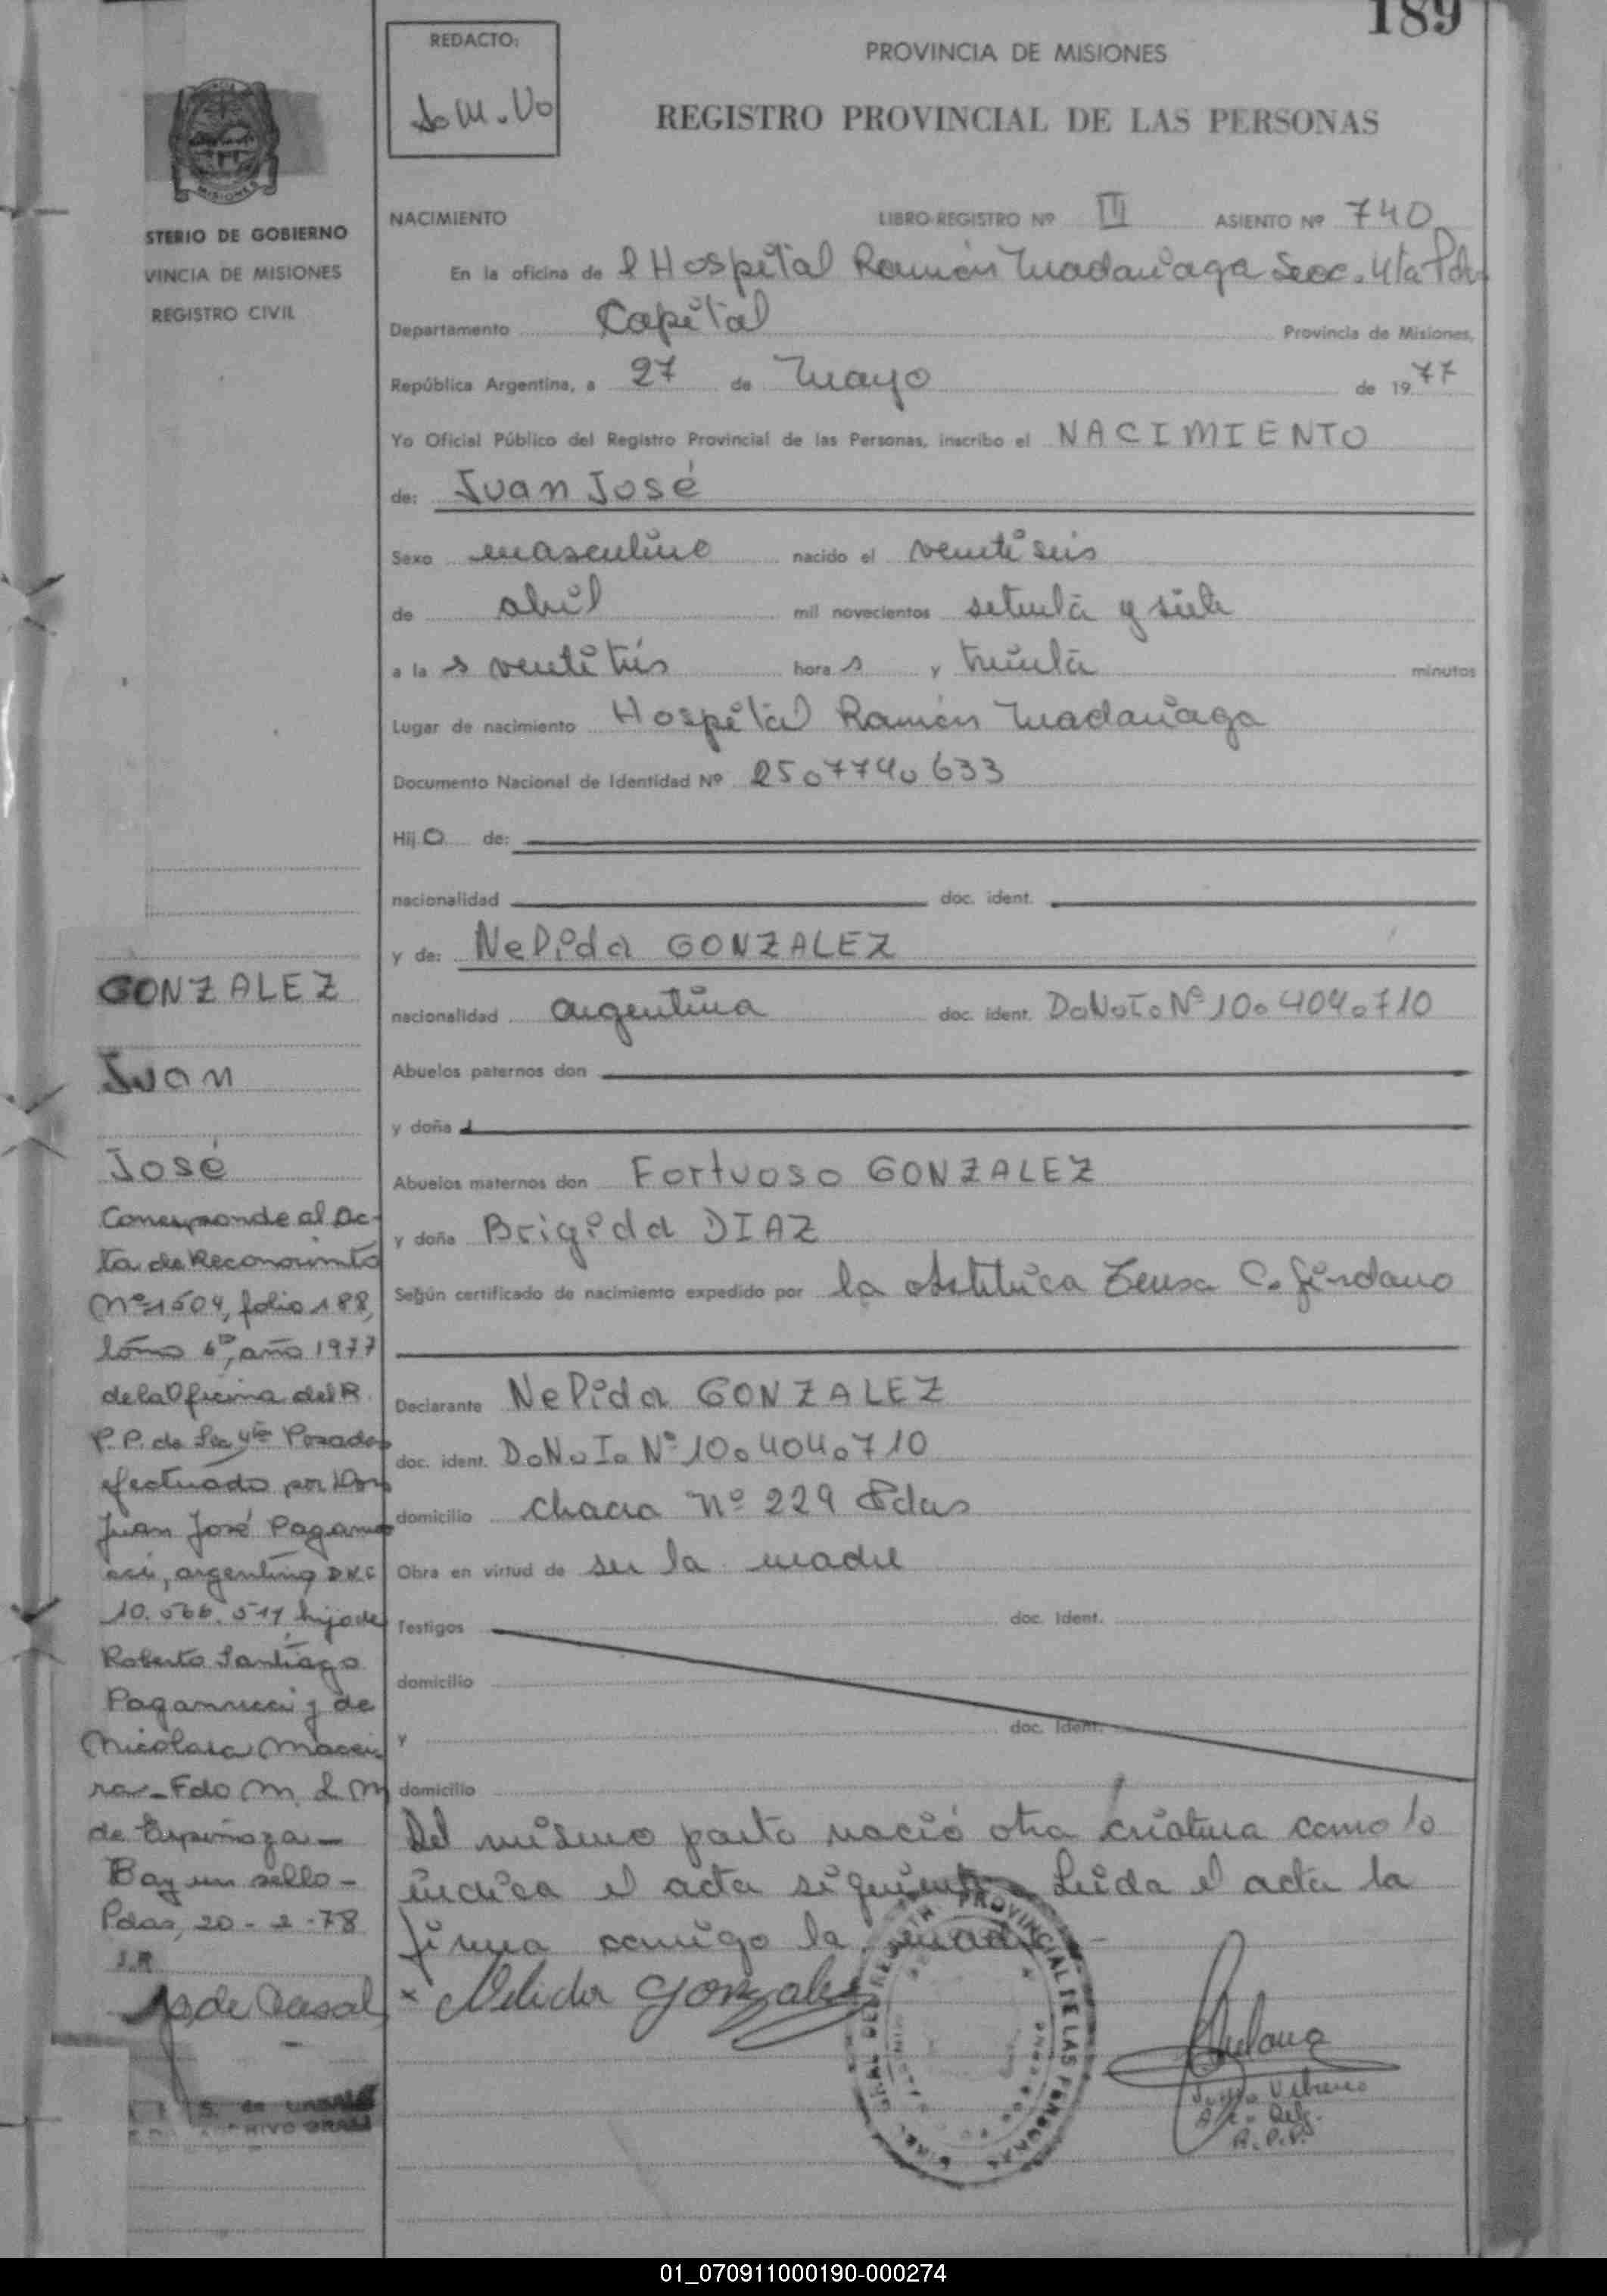 189
REDACTO:
PROVINCIA DE MISIONES
REGISTRO PROVINCIAL DE LAS PERSONAS
MISIONES
STERIO DE GOBIERNO
VINCIA DE MISIONES
REGISTRO CIVIL
NACIMIENTO LIBRO REGISTRO Nº III ASIENTO Nº 740
En la oficina de l Hospital Ramón Madariaga Secc. 4ta Pdas
Departamento Capital Provincia de Misiones,
República Argentina, a 27 de Mayo de 1977
Yo Oficial Público del Registro Provincial de las Personas, inscribo el NACIMIENTO
de: Juan José
Sexo masculino nacido el veintiseis
de abril mil novecientos setenta y siete
a la s veintitrés hora s y treinta minutos
Lugar de nacimiento Hospital Ramón Madariaga
Documento Nacional de Identidad Nº 25.774.633
Hij o de:
nacionalidad doc. ident.
y de: Nelida GONZALEZ
nacionalidad argentina doc. ident. D.N.I. Nº 10.404.710
Abuelos paternos don
y doña
Abuelos maternos don Fortuoso GONZALEZ
y doña Brigida DIAZ
Según certificado de nacimiento expedido por la obstetrica C.
Declarante Nelida GONZALEZ
doc. ident. D.N.I. Nº 10.404.710
domicilio chacra Nº 229 Pdas
Obra en virtud de ser la madre
Testigos doc. Ident.
domicilio
y doc. Ident.
domicilio
Del mismo parto nació otra criatura como lo
indica el acta siguiente Leida el acta la
firma conmigo la madre -
x Nelida Gonzalez
GONZALEZ
Juan
José
Corresponde al Ac-
ta de Reconocimto
Nº 1504, folio 188,
tomo 6º, año 1977
de la Oficina del R.
P.P. de Sec 4ta Posadas
efectuado por Don
Juan José Paganu
cci, argentino
10.566.511 hijo de
Roberto Santiago
Paganucci y de
Nicolasa Macei
ra - Fdo M. L. M
de Espinoza -
Hay un sello -
Pdas, 20 - 2 - 78
J.R
de Casal
PROVINCIAL DE LAS PERSONAS
R.P.P.
01_070911000190-000274